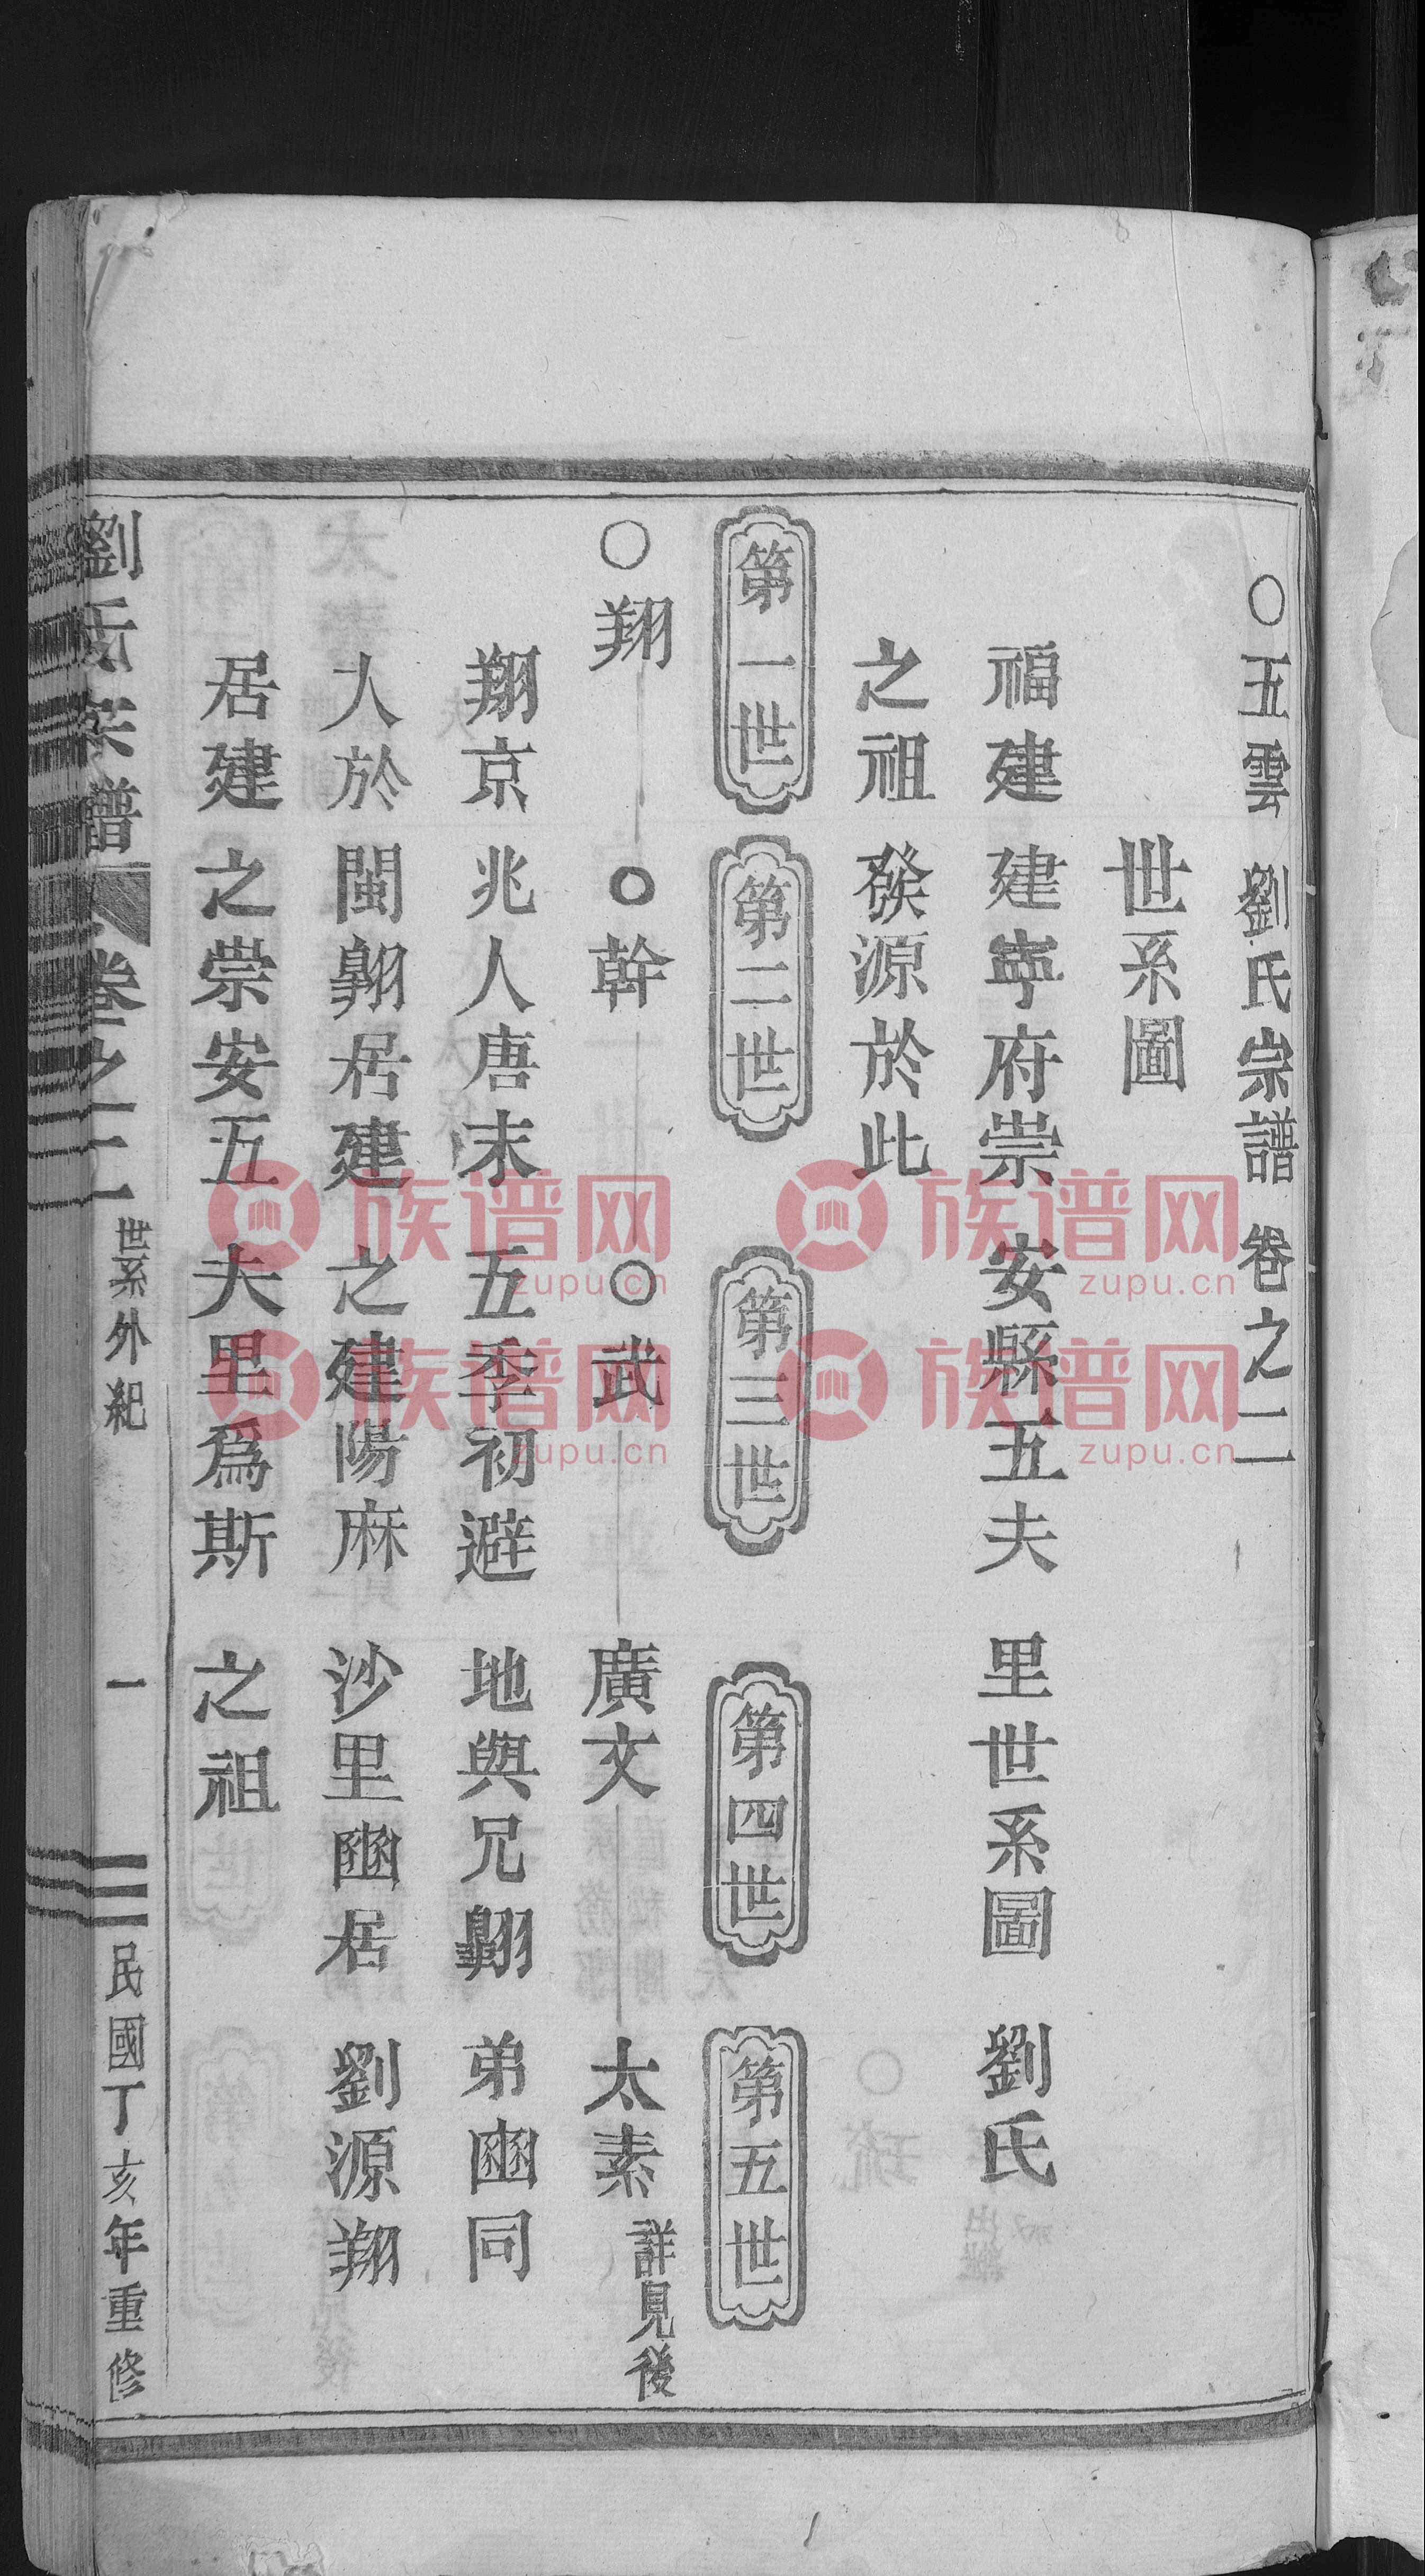 ○五雲劉氏宗譜卷之二
世系圖
福建建寧府崇安縣五夫里世系圖劉氏
之祖發源於此
第一世 第二世 第三世 第四世 第五世
○翔 ○幹 ○武 廣文 太素 詳見後
翔京兆人唐末五季初避地與兄翶弟豳同
人於閩翶居建之建陽麻沙里豳居劉源翔
居建之崇安五夫里爲斯之祖
劉氏宗譜 卷之二 世系外紀 一 民國丁亥年重修
族谱网 zupu.cn
族谱网 zupu.cn
族谱网 zupu.cn
族谱网 zupu.cn